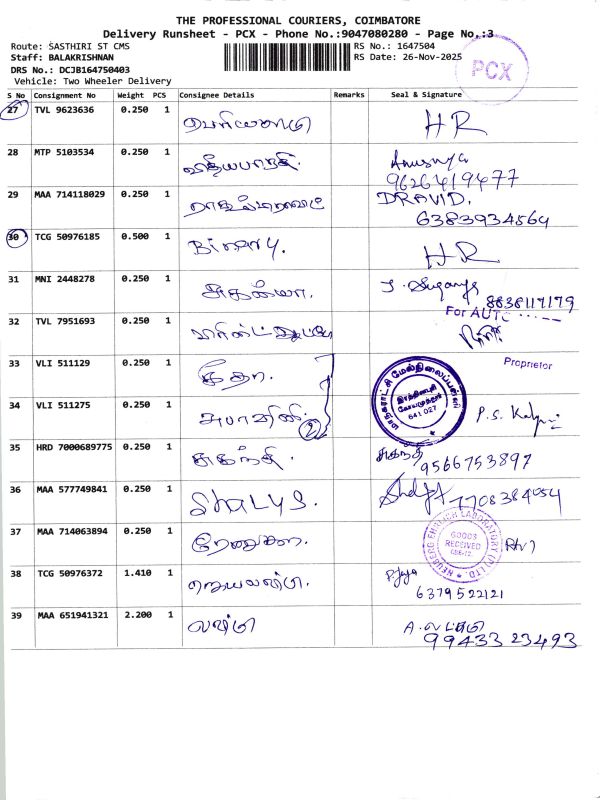 THE PROFESSIONAL COURIERS, COIMBATORE
Delivery Runsheet - PCX - Phone No.:9047080280 - Page No.:3
Route: SASTHIRI ST CMS
RS No.: 1647504
Staff: BALAKRISHNAN
RS Date: 26-Nov-2025
PCX
DRS No.: DCJB164750403
Vehicle: Two Wheeler Delivery
S No Consignment No Weight PCS Consignee Details Remarks Seal & Signature
27 TVL 9623636 0.250 1 HR
28 MTP 5103534 0.250 1 வித்யபாரதி. Anusuya
9626419477
29 MAA 714118029 0.250 1 DRAVID.
6383934564
30 TCG 50976185 0.500 1 Binary. HR
31 MNI 2448278 0.250 1 சுகன்யா. J. Suganya
8838117179
For AUTO
32 TVL 7951693 0.250 1
Proprietor
33 VLI 511129 0.250 1 கீதா.
34 VLI 511275 0.250 1 அபாஷினி. 2
மாநகராட்சி மேல்நிலைப்பள்ளி
இரத்தினபுரி
கோயமுத்தூர்
641 027
P.S. Kalpa
35 HRD 7000689775 0.250 1 சுகந்தி. சுகந்தி
9566753897
36 MAA 577749841 0.250 1 SHALYS.
7708384054
37 MAA 714063894 0.250 1 ரேணுகா.
NEUBERG EHRLICH LABORATORY (P) LTD.
GOODS
RECEIVED
CBE-12
38 TCG 50976372 1.410 1 ஜெயலஷ்மி. P Jaya
6379522121
39 MAA 651941321 2.200 1 லஷ்மி A. லட்சுமி
9943323493